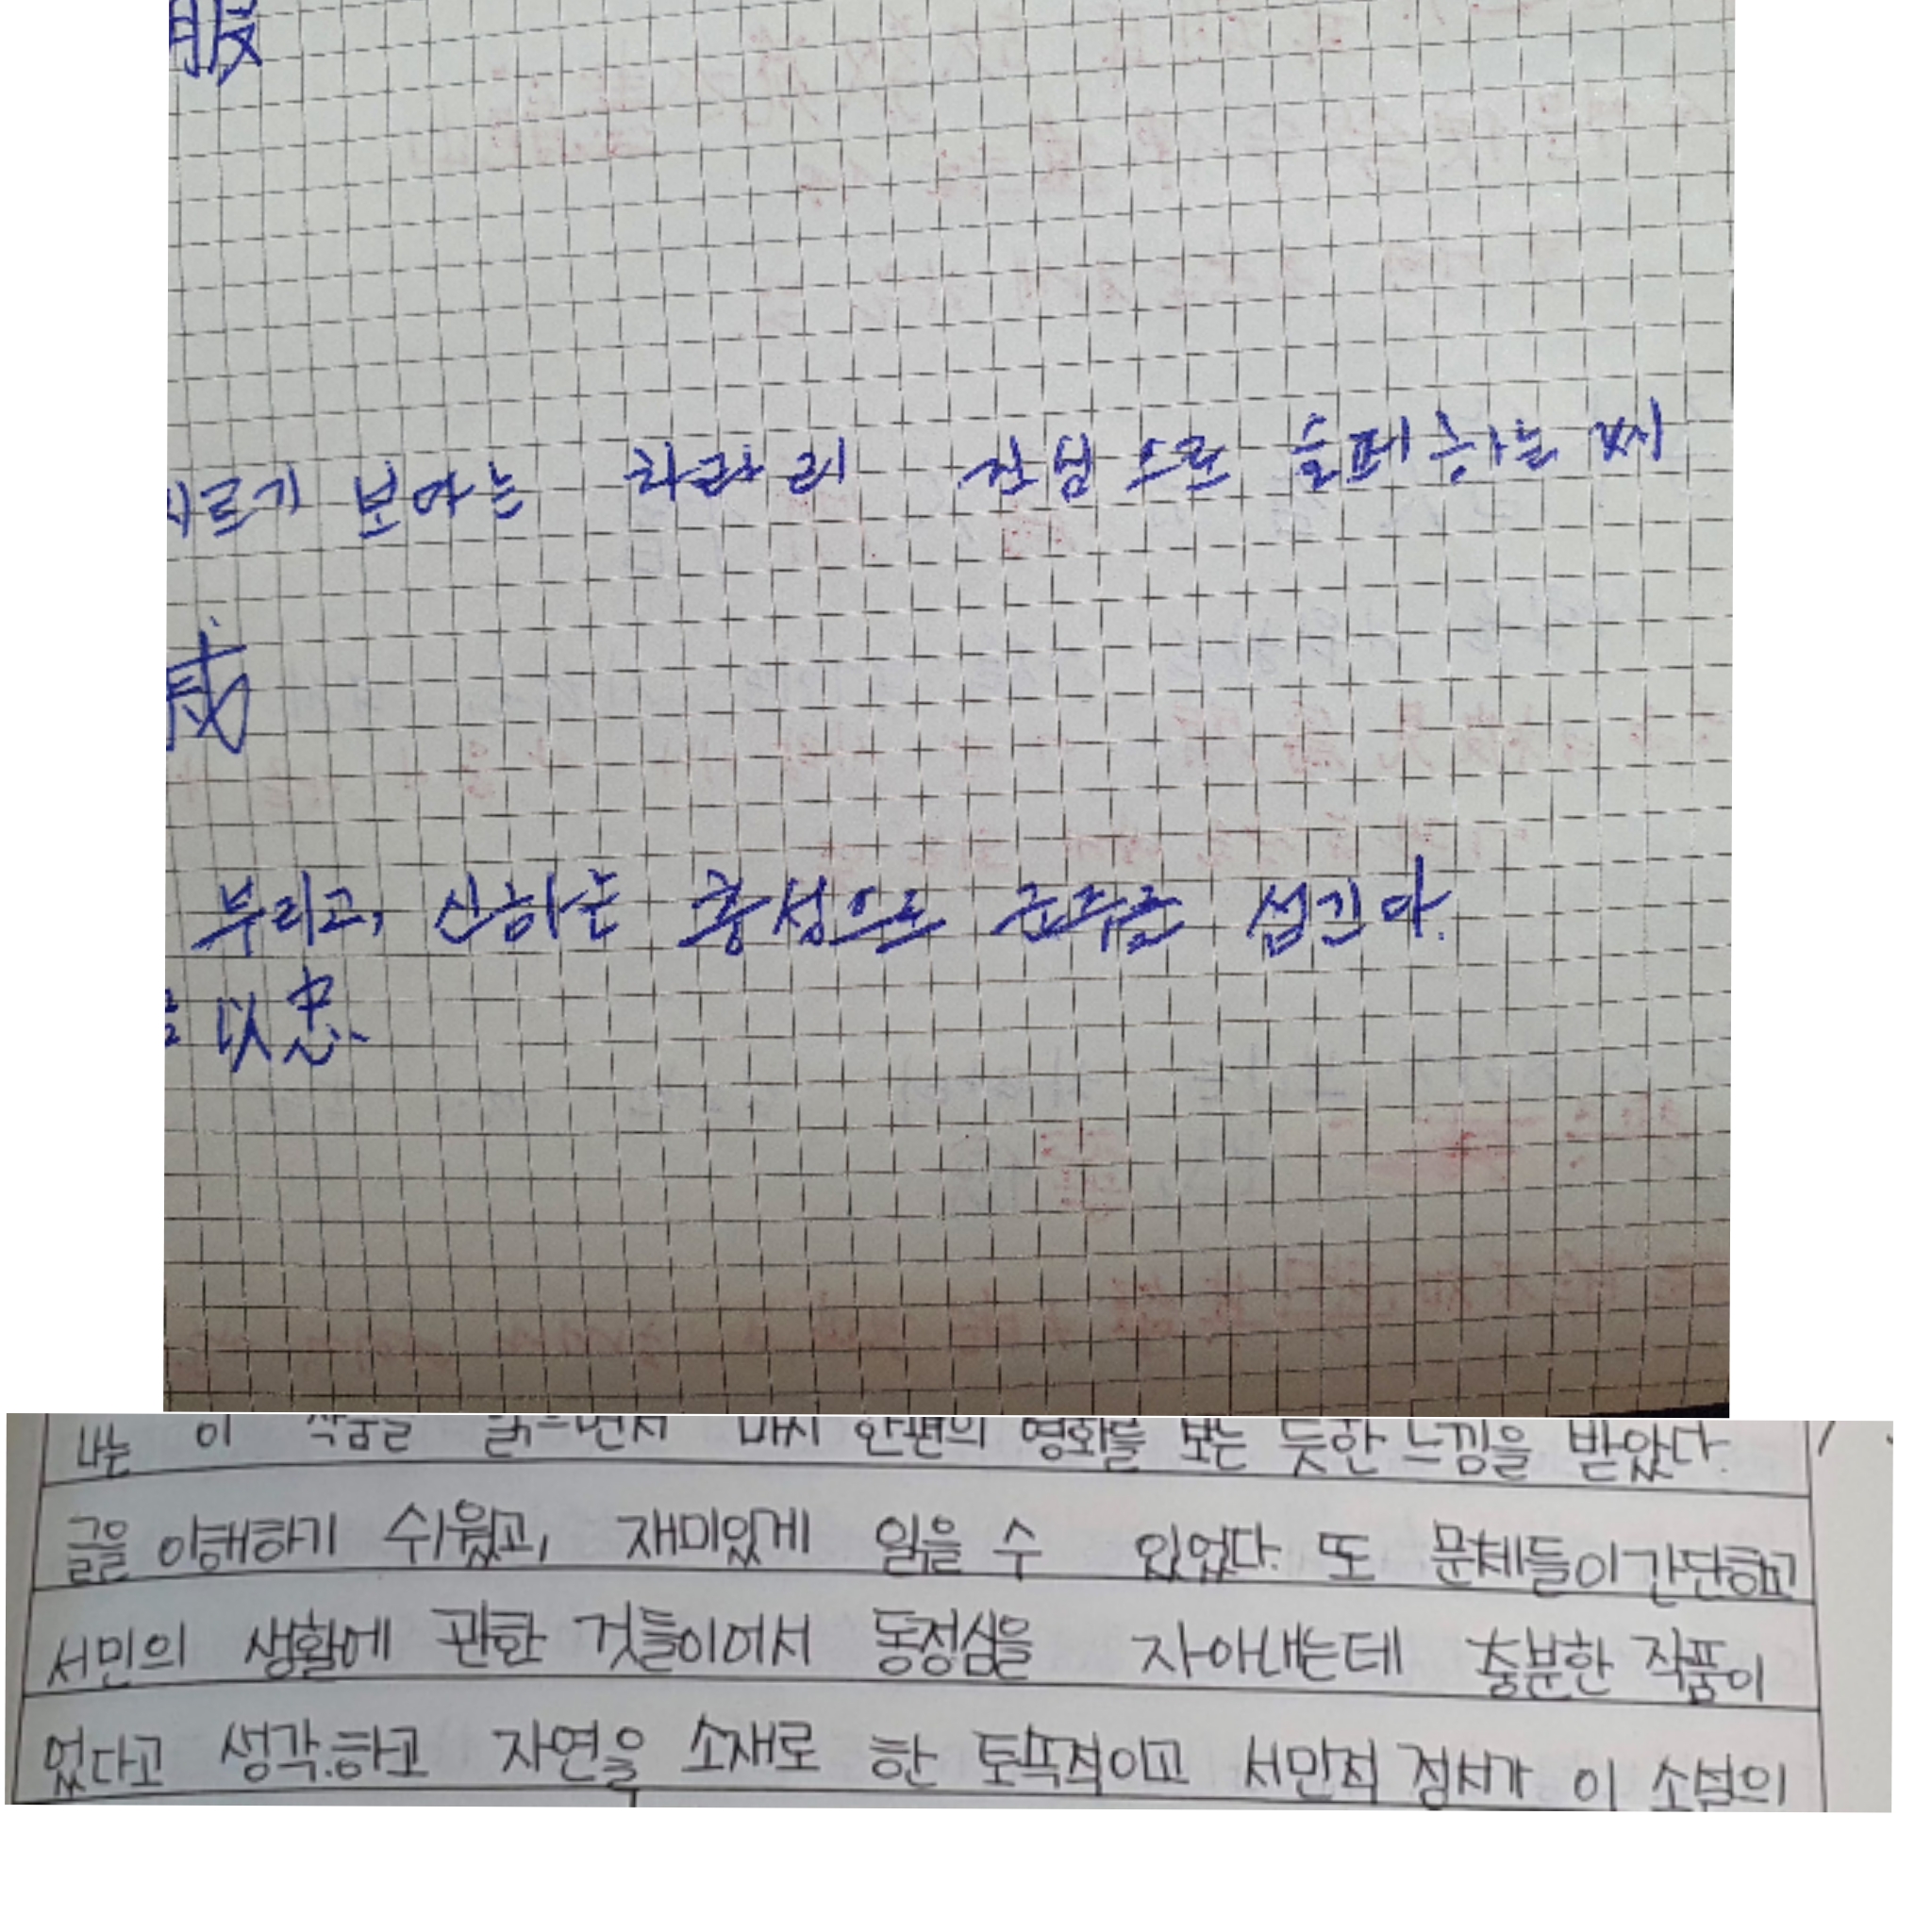 服
르기 보아는 차라리 진심으로 슬퍼하는 찌
戚
부리고, 신하는 충성으로 군주를 섬긴다.
以忠
나는 이 작품을 읽으면서 마치 한편의 영화를 보는 듯한 느낌을 받았다.
글을 이해하기 쉬웠고, 재미있게 읽을 수 있었다. 또 문체들이 간단하고
서민의 생활에 관한 것들이어서 동정심을 자아내는데 충분한 작품이
었다고 생각.하고 자연을 소재로 한 토속적이고 서민적 정서가 이 소설의